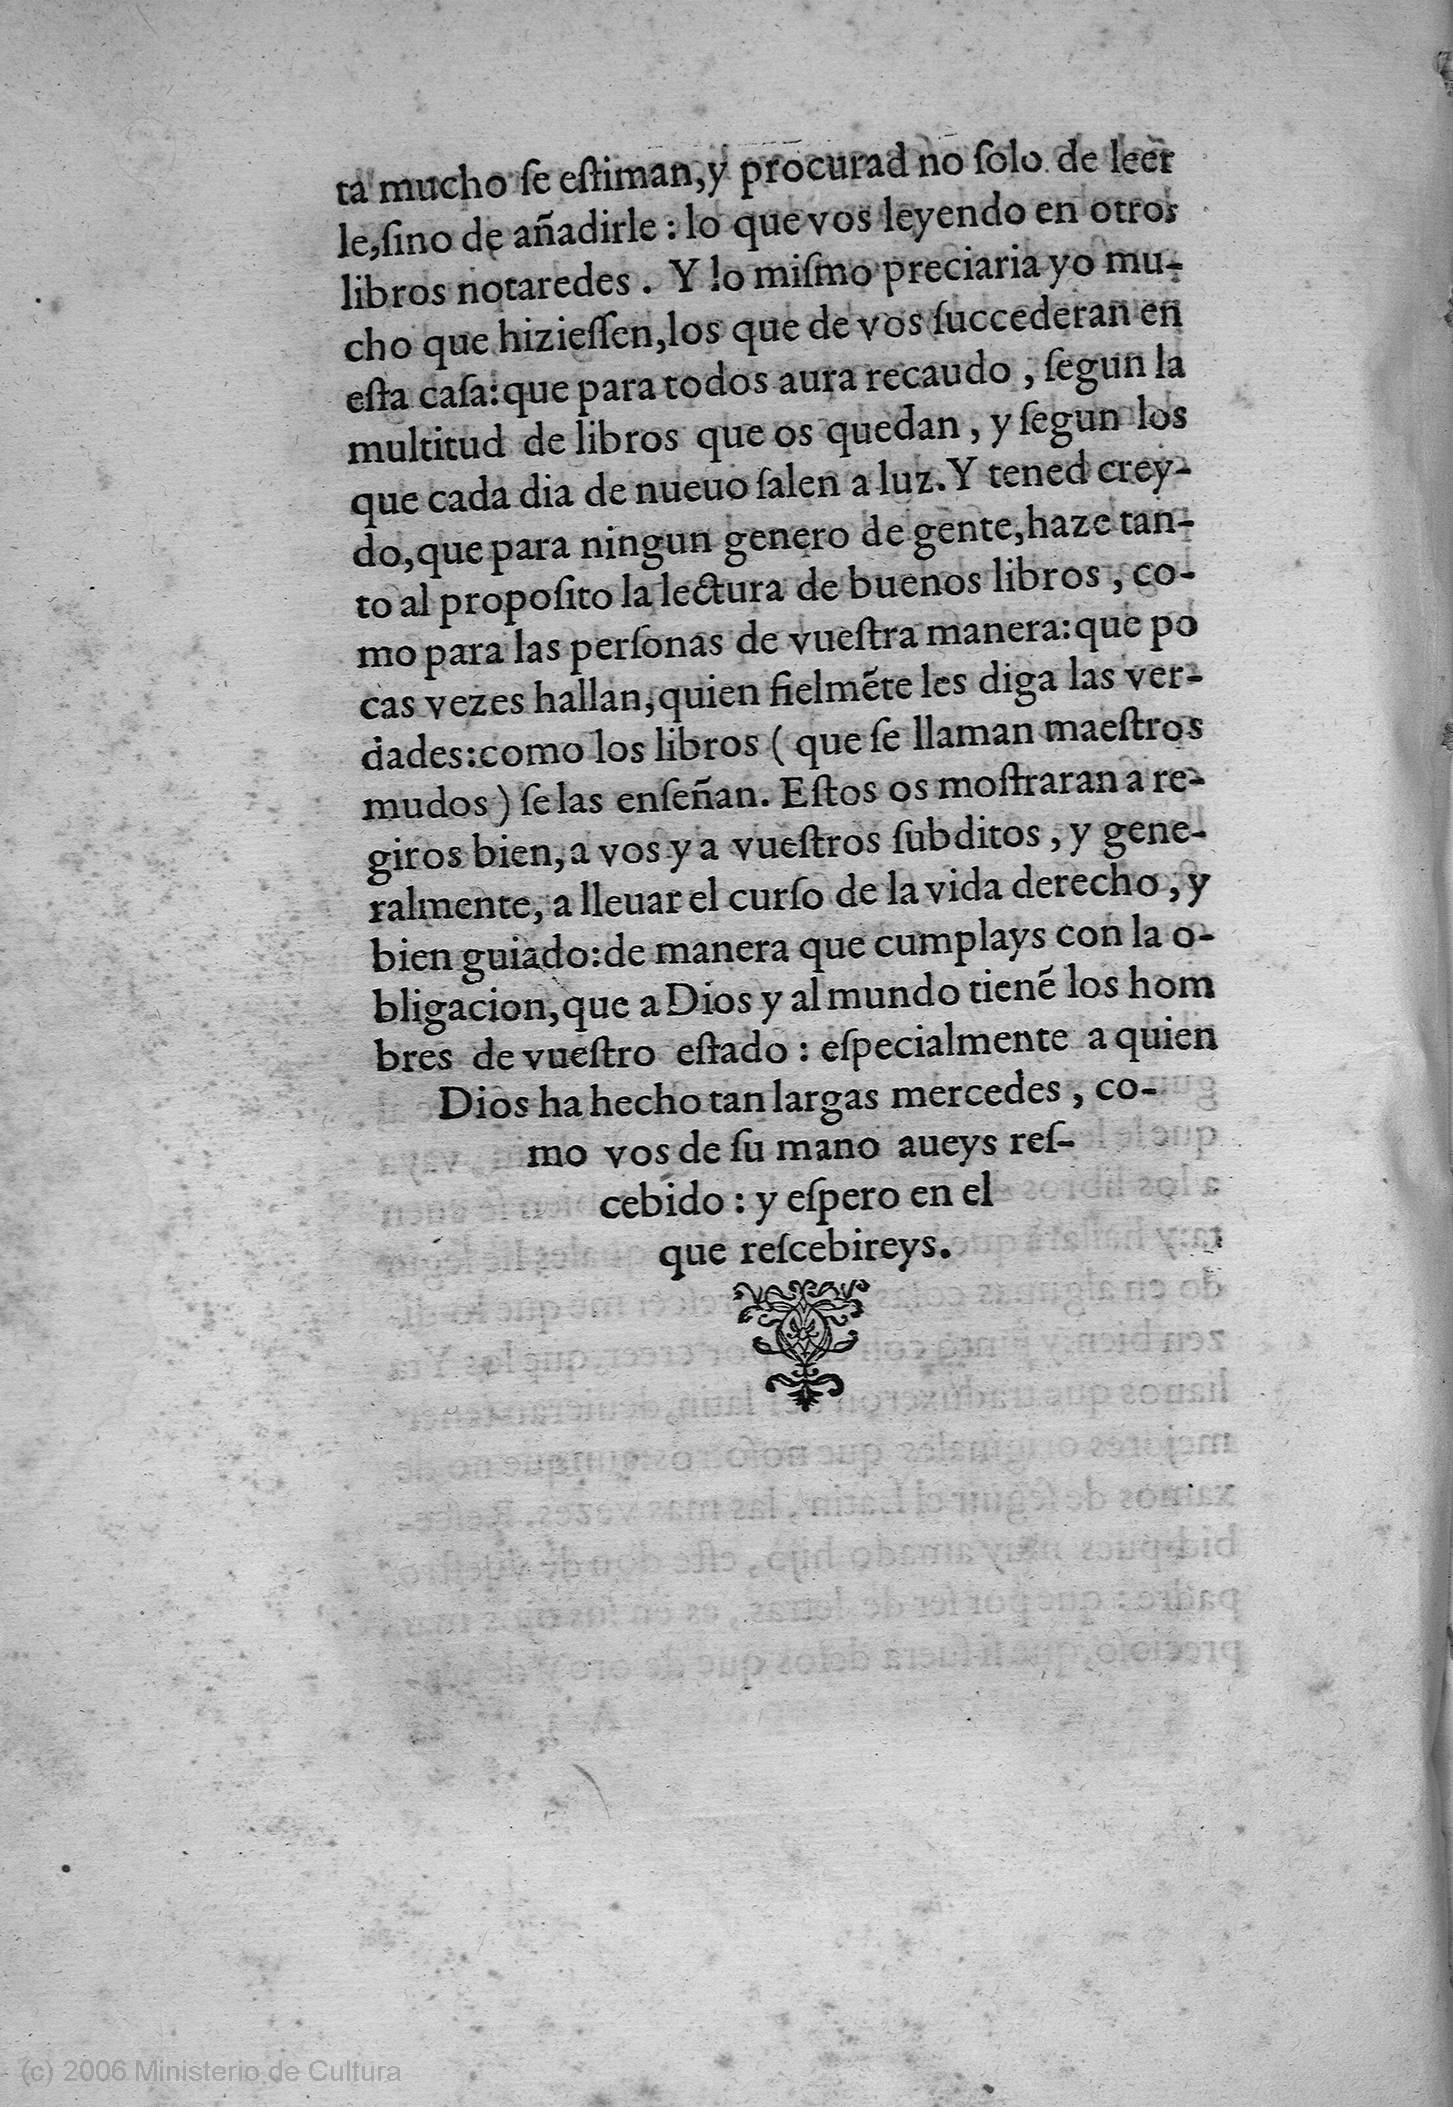 ta mucho ſe eſtiman,y procurad no ſolo de leer
le,ſino de añadirle : lo que vos leyendo en otros
libros notaredes . Y lo miſmo preciaria yo mu-
cho que hizieſſen,los que de vos ſuccederan en
eſta caſa:que para todos aura recaudo , ſegun la
multitud de libros que os quedan , y ſegun los
que cada dia de nueuo ſalen a luz.Y tened crey-
do,que para ningun genero de gente,haze tan-
to al propoſito la lectura de buenos libros , co-
mo para las perſonas de vueſtra manera:que po
cas vezes hallan,quien fielmẽte les diga las ver-
dades:como los libros ( que ſe llaman maeſtros
mudos ) ſe las enſeñan. Eſtos os moſtraran a re-
giros bien,a vos y a vueſtros ſubditos , y gene-
ralmente, a lleuar el curſo de la vida derecho , y
bien guiado:de manera que cumplays con la o-
bligacion,que a Dios y al mundo tienẽ los hom
bres de vueſtro eſtado : eſpecialmente a quien
Dios ha hecho tan largas mercedes , co-
mo vos de ſu mano aueys reſ-
cebido : y eſpero en el
que reſcebireys.
(c) 2006 Ministerio de Cultura